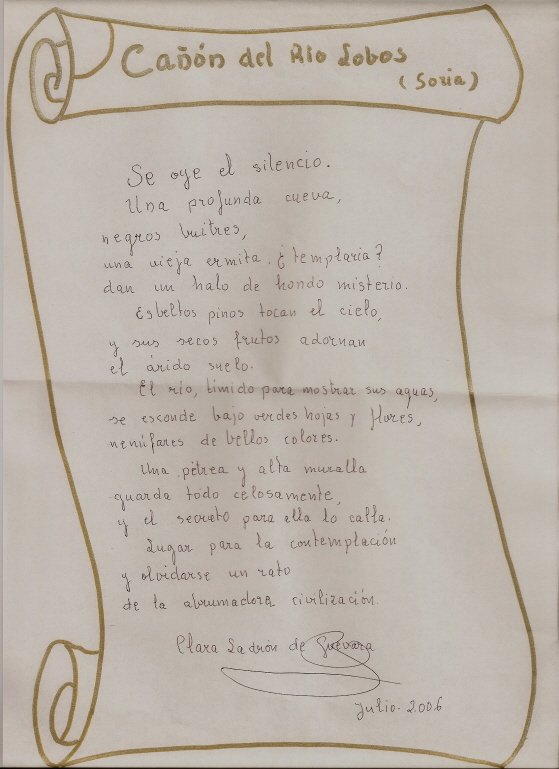 Cañón del Río Lobos
(Soria)
Se oye el silencio.
Una profunda cueva,
negros buitres,
una vieja ermita ¿templaria?
dan un halo de hondo misterio.
Esbeltos pinos tocan el cielo,
y sus secos frutos adornan
el árido suelo.
El río, tímido para mostrar sus aguas,
se esconde bajo verdes hojas y flores,
nenúfares de bellos colores.
Una pétrea y alta muralla
guarda todo celosamente,
y el secreto para ella lo calla.
Lugar para la contemplación
y olvidarse un rato
de la abrumadora civilización.
Clara Ladrón de Guevara
Julio-2006